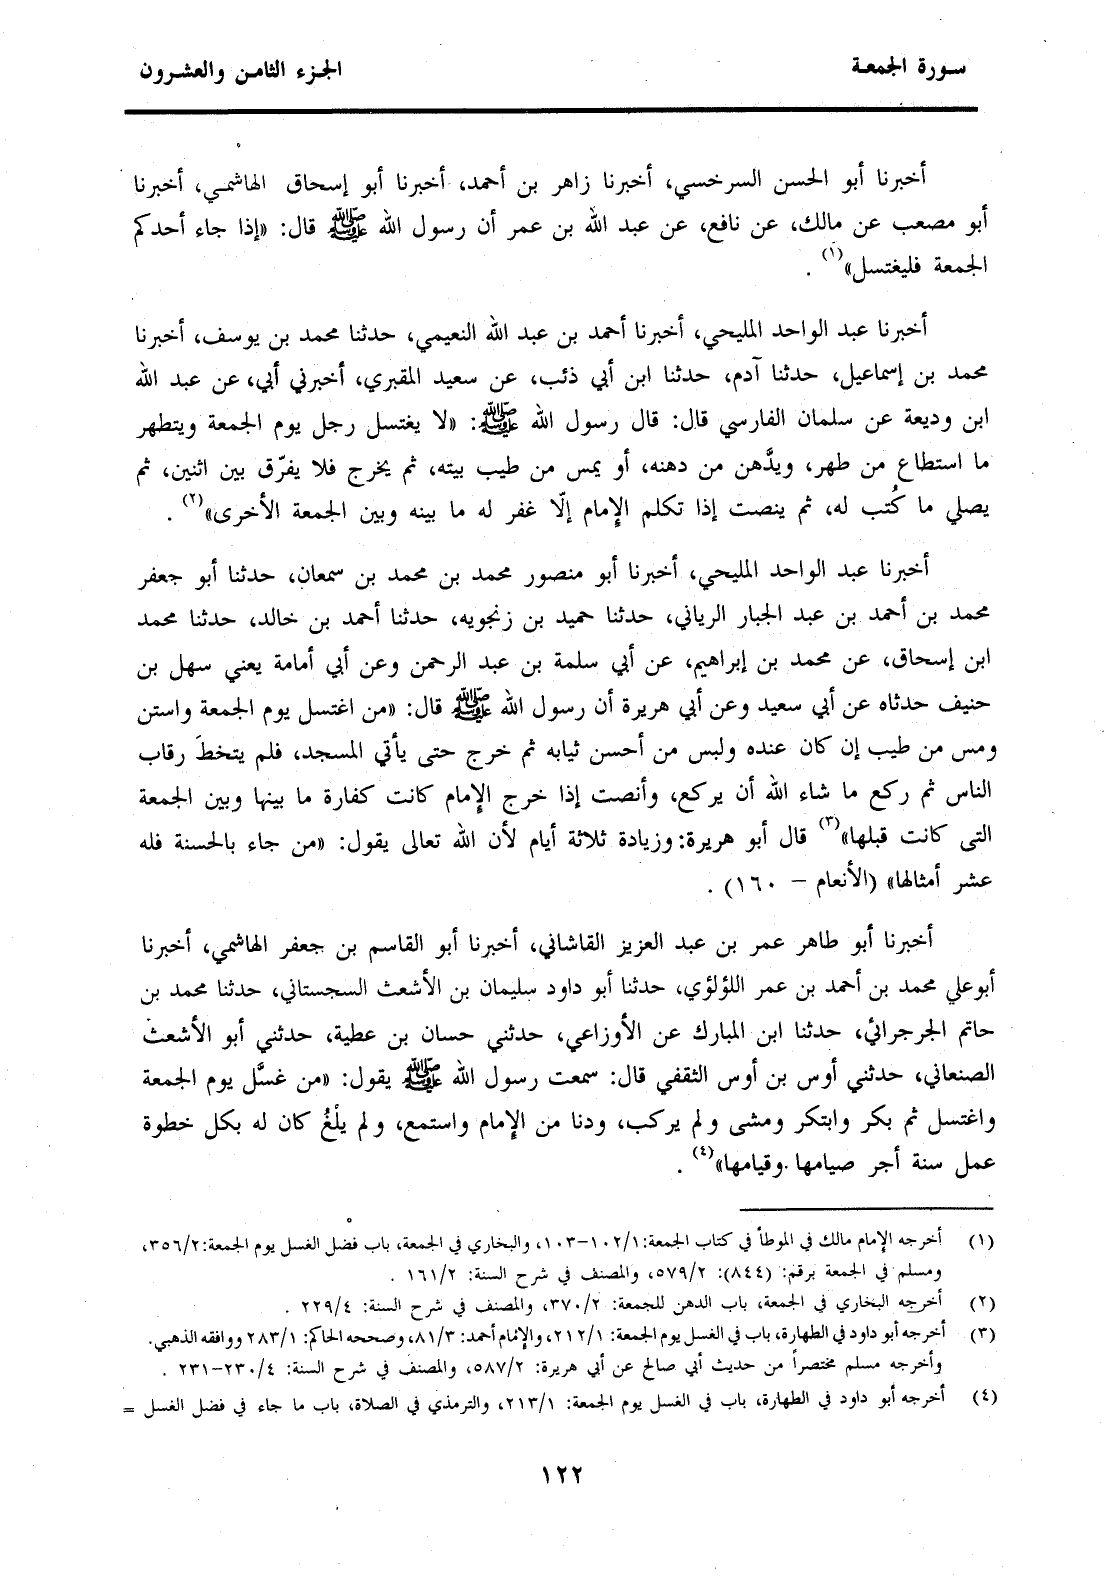 سورة الجمعة
الجزء الثامن والعشرون
أخبرنا أبو الحسن السرخسي، أخبرنا زاهر بن أحمد، أخبرنا أبو إسحاق الهاشمي، أخبرنا
أبو مصعب عن مالك، عن نافع، عن عبد الله بن عمر أن رسول الله ﷺ قال: «إذا جاء أحدكم
الجمعة فليغتسل»(١) .
أخبرنا عبد الواحد المليحي، أخبرنا أحمد بن عبد الله النعيمي، حدثنا محمد بن يوسف، أخبرنا
محمد بن إسماعيل، حدثنا آدم، حدثنا ابن أبي ذئب، عن سعيد المقبري، أخبرني أبي، عن عبد الله
ابن وديعة عن سلمان الفارسي قال: قال رسول الله ﷺ: «لا يغتسل رجل يوم الجمعة ويتطهر
ما استطاع من طهر، ويدَّهن من دهنه، أو يمس من طيب بيته، ثم يخرج فلا يفرّق بين اثنين، ثم
يصلي ما كُتب له، ثم ينصت إذا تكلم الإمام إلّا غفر له ما بينه وبين الجمعة الأخرى»(٢) .
أخبرنا عبد الواحد المليحي، أخبرنا أبو منصور محمد بن محمد بن سمعان، حدثنا أبو جعفر
محمد بن أحمد بن عبد الجبار الرياني، حدثنا حميد بن زنجويه، حدثنا أحمد بن خالد، حدثنا محمد
ابن إسحاق، عن محمد بن إبراهيم، عن أبي سلمة بن عبد الرحمن وعن أبي أمامة يعني سهل بن
حنيف حدثاه عن أبي سعيد وعن أبي هريرة أن رسول الله ﷺ قال: «من اغتسل يوم الجمعة واستن
ومس من طيب إن كان عنده ولبس من أحسن ثيابه ثم خرج حتى يأتي المسجد، فلم يتخطَ رقاب
الناس ثم ركع ما شاء الله أن يركع، وأنصت إذا خرج الإمام كانت كفارة ما بينها وبين الجمعة
التى كانت قبلها»(٣) قال أبو هريرة: وزيادة ثلاثة أيام لأن الله تعالى يقول: «من جاء بالحسنة فله
عشر أمثالها» (الأنعام – ١٦٠) .
أخبرنا أبو طاهر عمر بن عبد العزيز القاشاني، أخبرنا أبو القاسم بن جعفر الهاشمي، أخبرنا
أبوعلي محمد بن أحمد بن عمر اللؤلؤي، حدثنا أبو داود سليمان بن الأشعث السجستاني، حدثنا محمد بن
حاتم الجرجرائي، حدثنا ابن المبارك عن الأوزاعي، حدثني حسان بن عطية، حدثني أبو الأشعث
الصنعاني، حدثني أوس بن أوس الثقفي قال: سمعت رسول الله ﷺ يقول: «من غسَّل يوم الجمعة
واغتسل ثم بكر وابتكر ومشى ولم يركب، ودنا من الإمام واستمع، ولم يلْغُ كان له بكل خطوة
عمل سنة أجر صيامها وقيامها»(٤) .
(١) أخرجه الإمام مالك في الموطأ في كتاب الجمعة: ١٠٢/١–١٠٣، والبخاري في الجمعة، باب فضل الغسل يوم الجمعة: ٣٥٦/٢،
ومسلم في الجمعة برقم: (٨٤٤): ٥٧٩/٢، والمصنف في شرح السنة: ١٦١/٢ .
(٢) أخرجه البخاري في الجمعة، باب الدهن للجمعة: ٣٧٠/٢، والمصنف في شرح السنة: ٢٢٩/٤ .
(٣) أخرجه أبو داود في الطهارة، باب في الغسل يوم الجمعة: ٢١٢/١، والإمام أحمد: ٨١/٣، وصححه الحاكم: ٢٨٣/١ ووافقه الذهبي.
وأخرجه مسلم مختصراً من حديث أبي صالح عن أبي هريرة: ٥٨٧/٢، والمصنف في شرح السنة: ٢٣٠/٤–٢٣١ .
(٤) أخرجه أبو داود في الطهارة، باب في الغسل يوم الجمعة: ٢١٣/١، والترمذي في الصلاة، باب ما جاء في فضل الغسل =
١٢٢